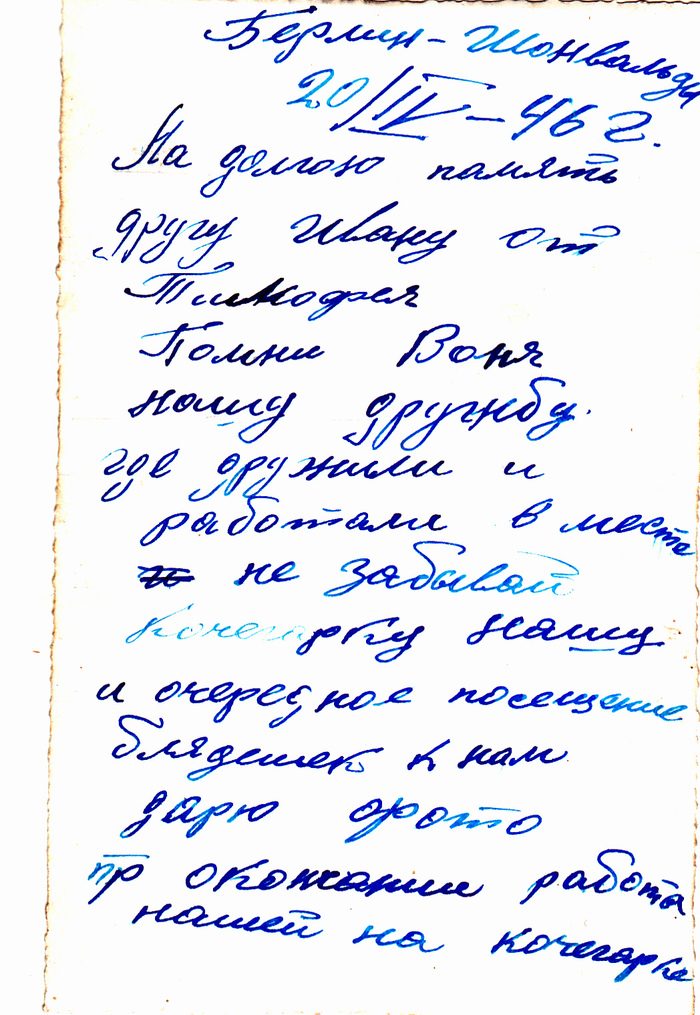 Берлин - Шонвальди
20/IV - 46 г.
На долгою память
другу Ивану от
Тимофея
Помни Воня
нашу дружбу.
где дружили и
работали в месте
не забывай
кочегарку нашу
и очередное посещение
блядешек к нам
дарю фото
пр окончании работы
нашей на кочегарке